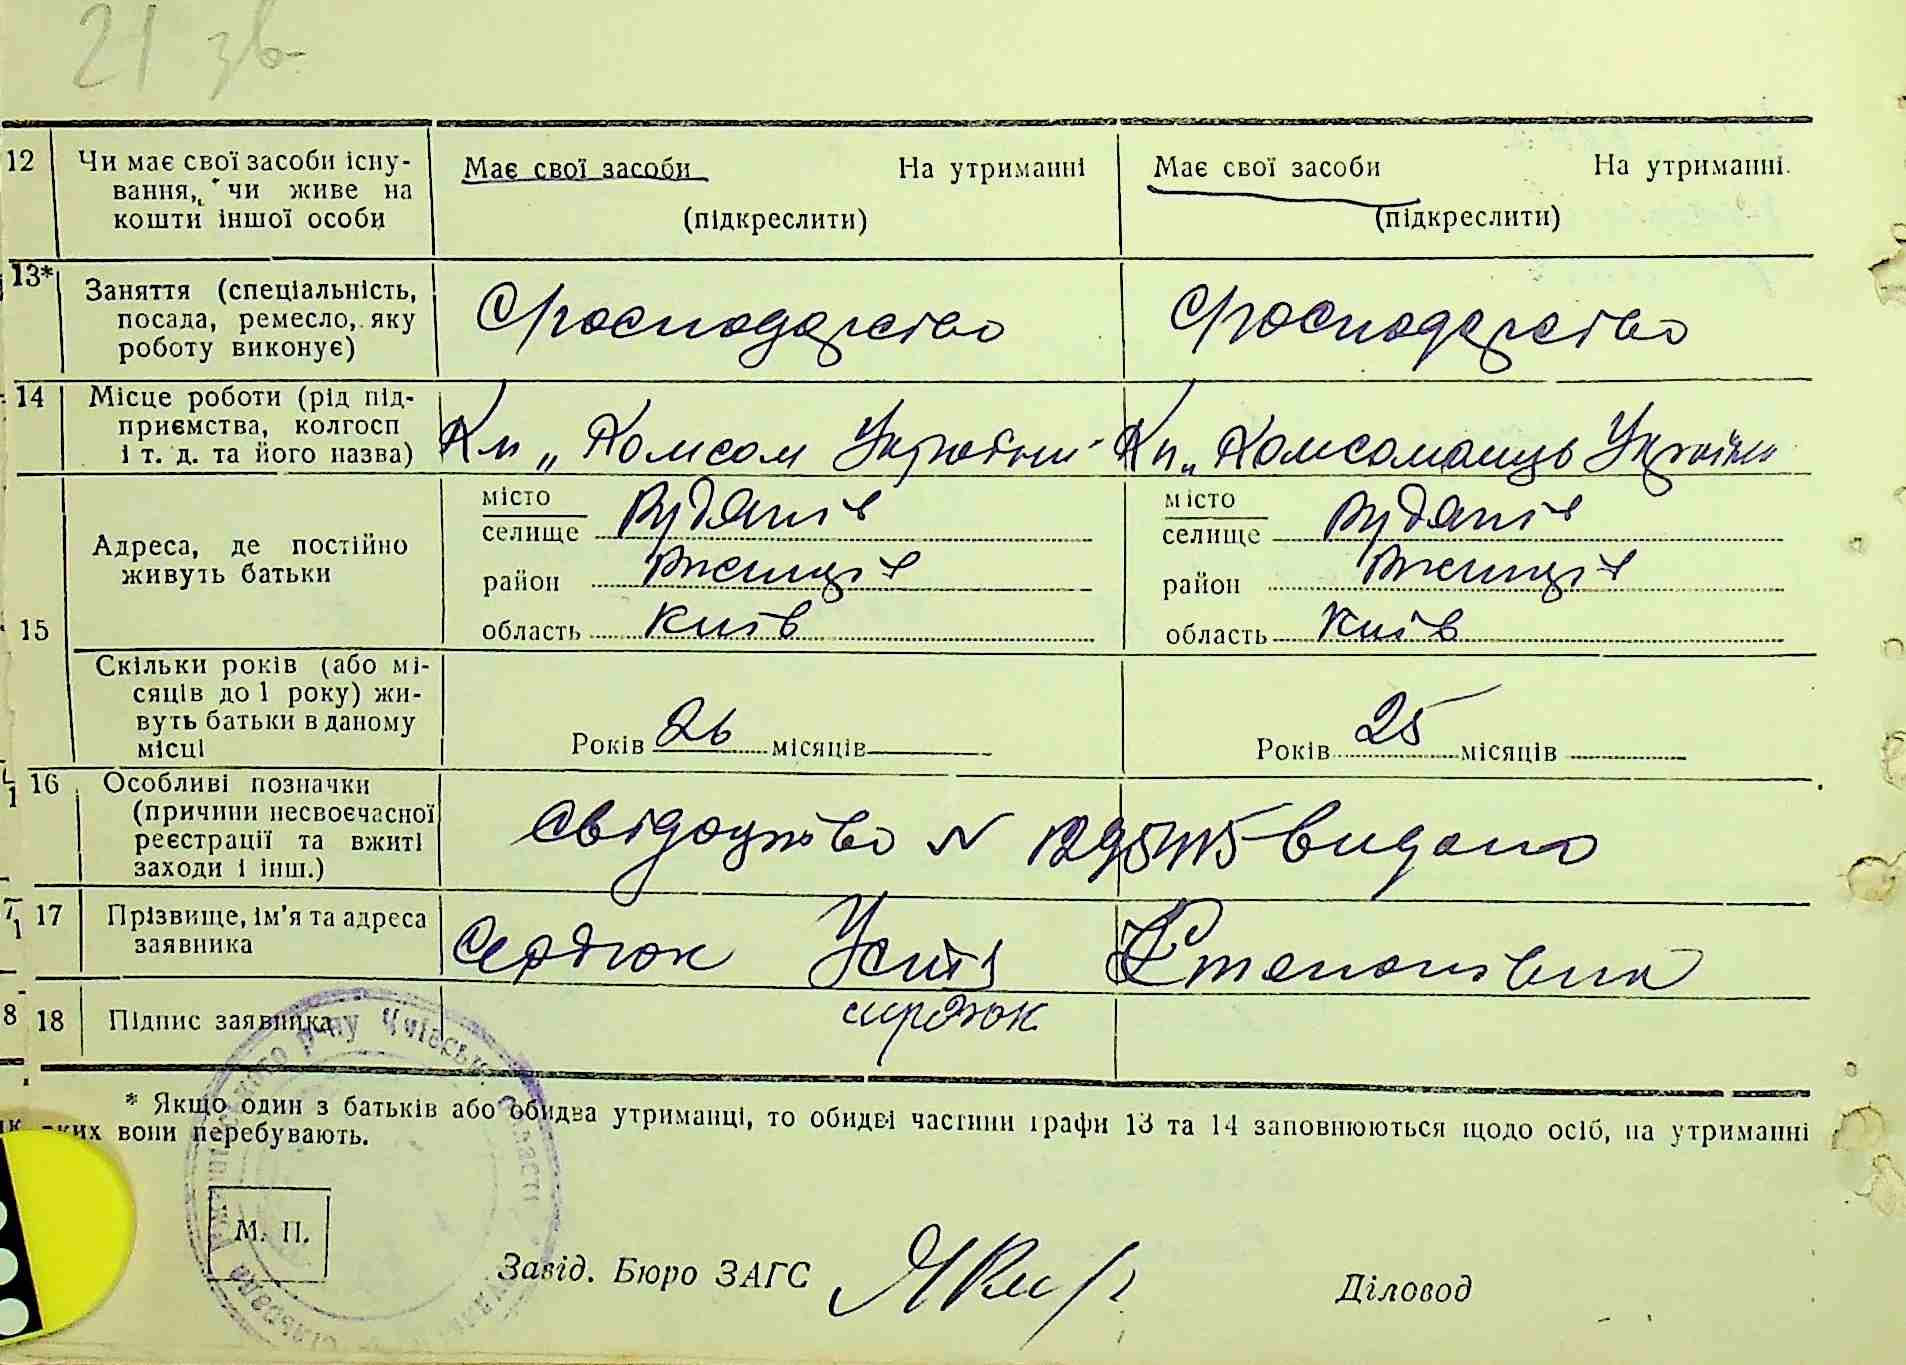 21 зв-
12 Чи має свої засоби існу- Має свої засоби На утриманні Має свої засоби На утриманні.
вання, чи живе на
кошти іншої особи (підкреслити) (підкреслити)
13* Заняття (спеціальність,
посада, ремесло, яку С/господарство С/господарство
роботу виконує)
14 Місце роботи (рід під-
приємства, колгосп
і т. д. та його назва) Кп „ Комсом України Кп „ Комсомолець України
місто місто
селище Рудяків селище Рудяків
Адреса, де постійно
живуть батьки район район
15 область Київ область Київ
Скільки років (або мі-
сяців до 1 року) жи-
вуть батьки в даному
місці Років 26 місяців Років 25 місяців
16 Особливі позначки
(причини несвоєчасної
реєстрації та вжиті Свідоцтво N видано
заходи і інш.)
17 Прізвище, ім'я та адреса
заявника Сердюк Устя Степанівна
18 Підпис заявника сирдюк
* Якщо один з батьків або обидва утриманці, то обидві частини графи 13 та 14 заповнюються щодо осіб, на утриманні
яких вони перебувають.
М. П.
Завід. Бюро ЗАГС Діловод